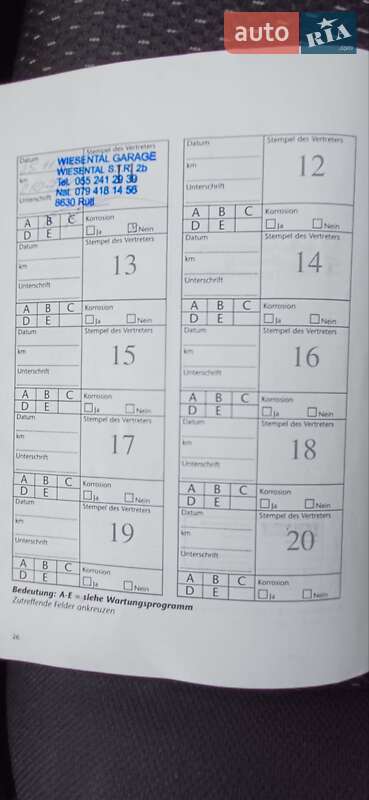 auto RIA .com
Datum
Stempel des Vertreters
km
Unterschrift
WIESENTAL GARAGE
WIESENTAL S.T.R. 2b
Tel. 055 241 29 39
Nat. 079 418 14 56
8630 Rüti
A B C
D E
Korrosion
Ja Nein
Datum
Stempel des Vertreters
km
12
Unterschrift
A B C
D E
Korrosion
Ja Nein
Datum
Stempel des Vertreters
km
13
Unterschrift
A B C
D E
Korrosion
Ja Nein
Datum
Stempel des Vertreters
km
14
Unterschrift
A B C
D E
Korrosion
Ja Nein
Datum
Stempel des Vertreters
km
15
Unterschrift
A B C
D E
Korrosion
Ja Nein
Datum
Stempel des Vertreters
km
16
Unterschrift
A B C
D E
Korrosion
Ja Nein
Datum
Stempel des Vertreters
km
17
Unterschrift
A B C
D E
Korrosion
Ja Nein
Datum
Stempel des Vertreters
km
18
Unterschrift
A B C
D E
Korrosion
Ja Nein
Datum
Stempel des Vertreters
km
19
Unterschrift
A B C
D E
Korrosion
Ja Nein
Datum
Stempel des Vertreters
km
20
Unterschrift
A B C
D E
Korrosion
Ja Nein
Bedeutung: A-E = siehe Wartungsprogramm
Zutreffende Felder ankreuzen
26